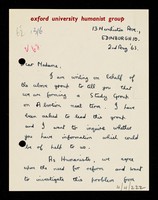 oxford university humanist group
13 Murchiston Ave.,
EDINBURGH 10.
2nd Aug 63.
Dear Madame,
I am writing on behalf of
the above group to tell you that
we are forming a Study Group
on Abortion next term. I have
been asked to lead this group
and I want to enquire whether
you have information which could
be of help to us.
As Humanists, we agree
upon the need for reform and want
to investigate this problem from